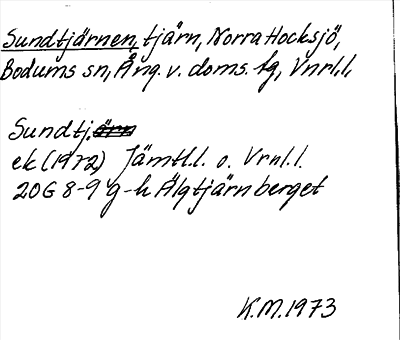 Sundtjärnen, tjärn, Norra Hocksjö,
Bodums sn, Ång. v. doms. fg, Vnrl.l,
Sundtj. ärn
ek (1972) Jämtl.l. o. Vrnl.l.
20G 8-9 g-h Älgtjärnberget
K.M. 1973